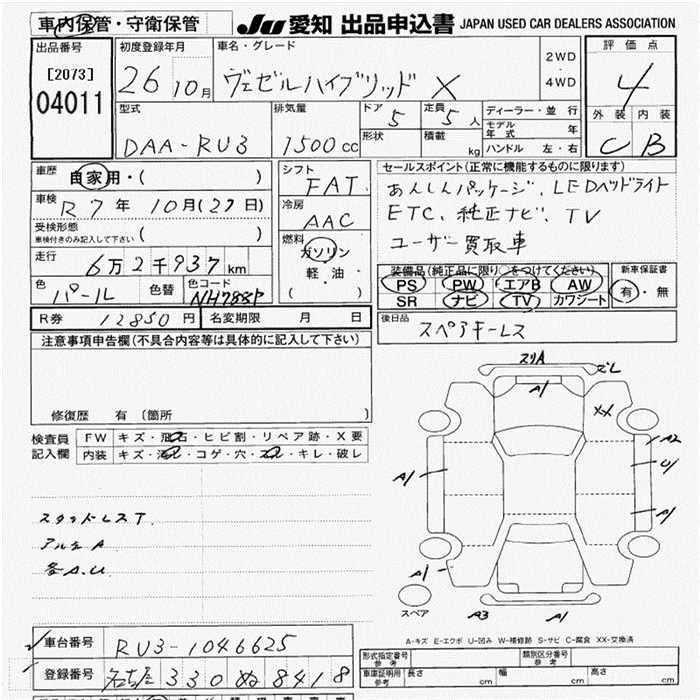 車内保管・守衛保管
JU 愛知 出品申込書 JAPAN USED CAR DEALERS ASSOCIATION
出品番号 初度登録年月 車名・グレード 評価点
[2073] 26 10月 ヴェゼルハイブリッド X 2WD・4WD 4
04011
型式 排気量 ドア 5 定員 5人 ディーラー・並行 外装 内装
DAA-RU3 1500cc 形状 積載 kg モデル年式 年 C B
ハンドル 左・右
車歴 自家用・( ) シフト FAT セールスポイント(正常に機能するものに限ります)
車検 R7年 10月(27日) 冷房 AAC あんしんパッケージ、LEDヘッドライト
受検形態 ( ) ETC、純正ナビ、TV
車検付きのみ記入して下さい 燃料 ガソリン ユーザー買取車
走行 6万2千937km 軽油・( )
色 パール 色替 色コード NH788P
装備品(純正品に限り○をつけてください) 新車保証書
PS PW エアB AW 有・無
SR ナビ TV カワシート
R券 12850円 名変期限 月 日 後日品
スペアキーレス
注意事項申告欄(不具合内容等は具体的に記入して下さい)
修復歴 有 〔箇所 〕
検査員記入欄 FW キズ・飛石・ヒビ割・リペア跡・X要
内装 キズ・コゲ・穴・キレ・破レ
A1
XX
A2
A1 U1
A1
A1
スペア A3 A1
スタッドレスT.
各A.U.
A-キズ E-エクボ U-凹み W-補修跡 S-サビ C-腐食 XX-交換済
車台番号 RU3-1046625
登録番号 名古屋 330 ぬ 8418
形式指定番号 参考 類別区分番号 参考
車庫証明用 参考 長さ cm 幅 cm 高さ cm